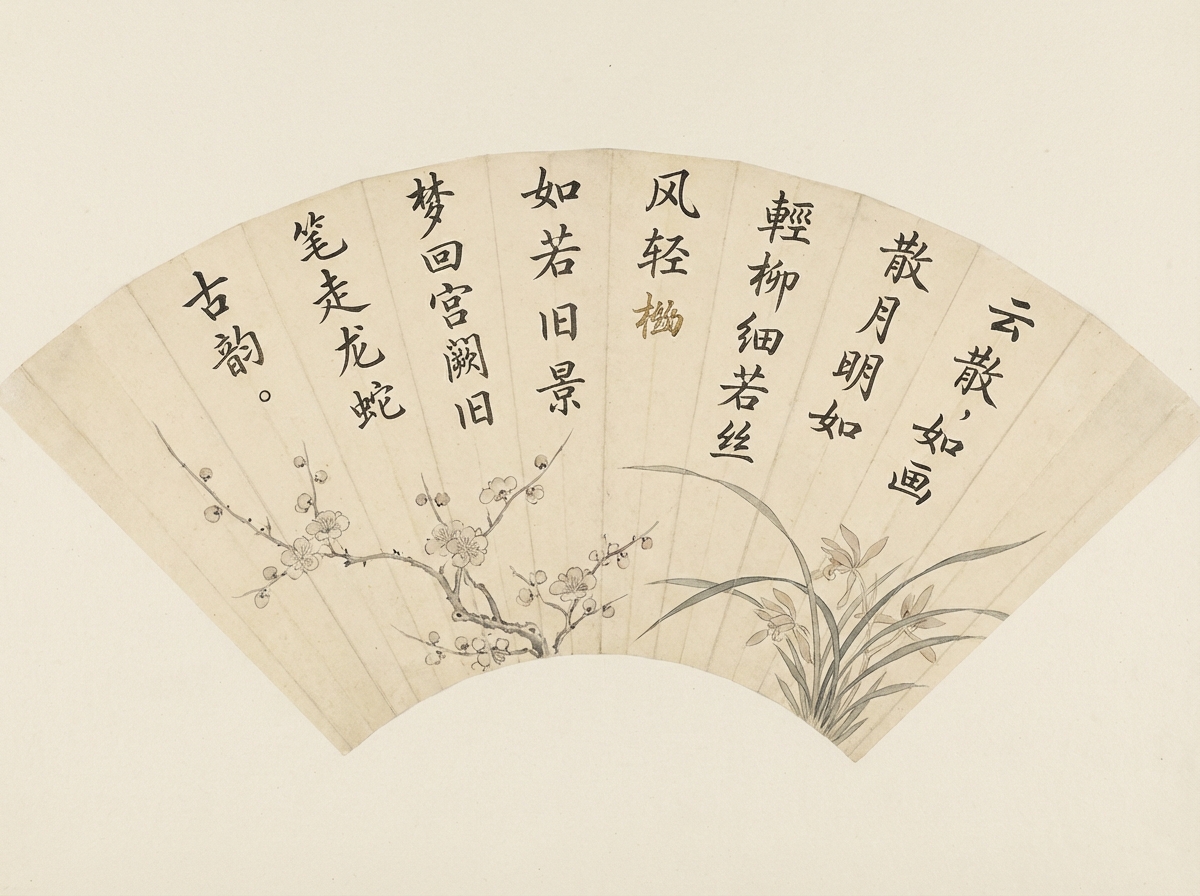 云散，如画，
散月明如
輕柳细若丝
风轻
如若旧景
梦回宫阙旧
笔走龙蛇
古韵。